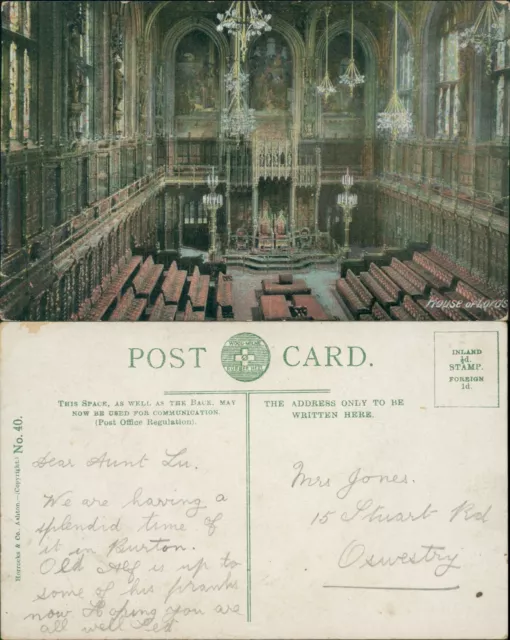 House of Lords
POST CARD.
THIS SPACE, AS WELL AS THE BACK, MAY
NOW BE USED FOR COMMUNICATION.
(Post Office Regulation).
THE ADDRESS ONLY TO BE
WRITTEN HERE.
INLAND
½d.
STAMP.
FOREIGN
1d.
Horrocks & Co. Ashton.—(Copyright.) No. 40.
Dear Aunt Lu.
We are having a
splendid time of
it in Burton.
Old Alf is up to
some of his pranks
now. Hoping you are
all well
Mrs Jones.
15 Stuart Rd
Oswestry